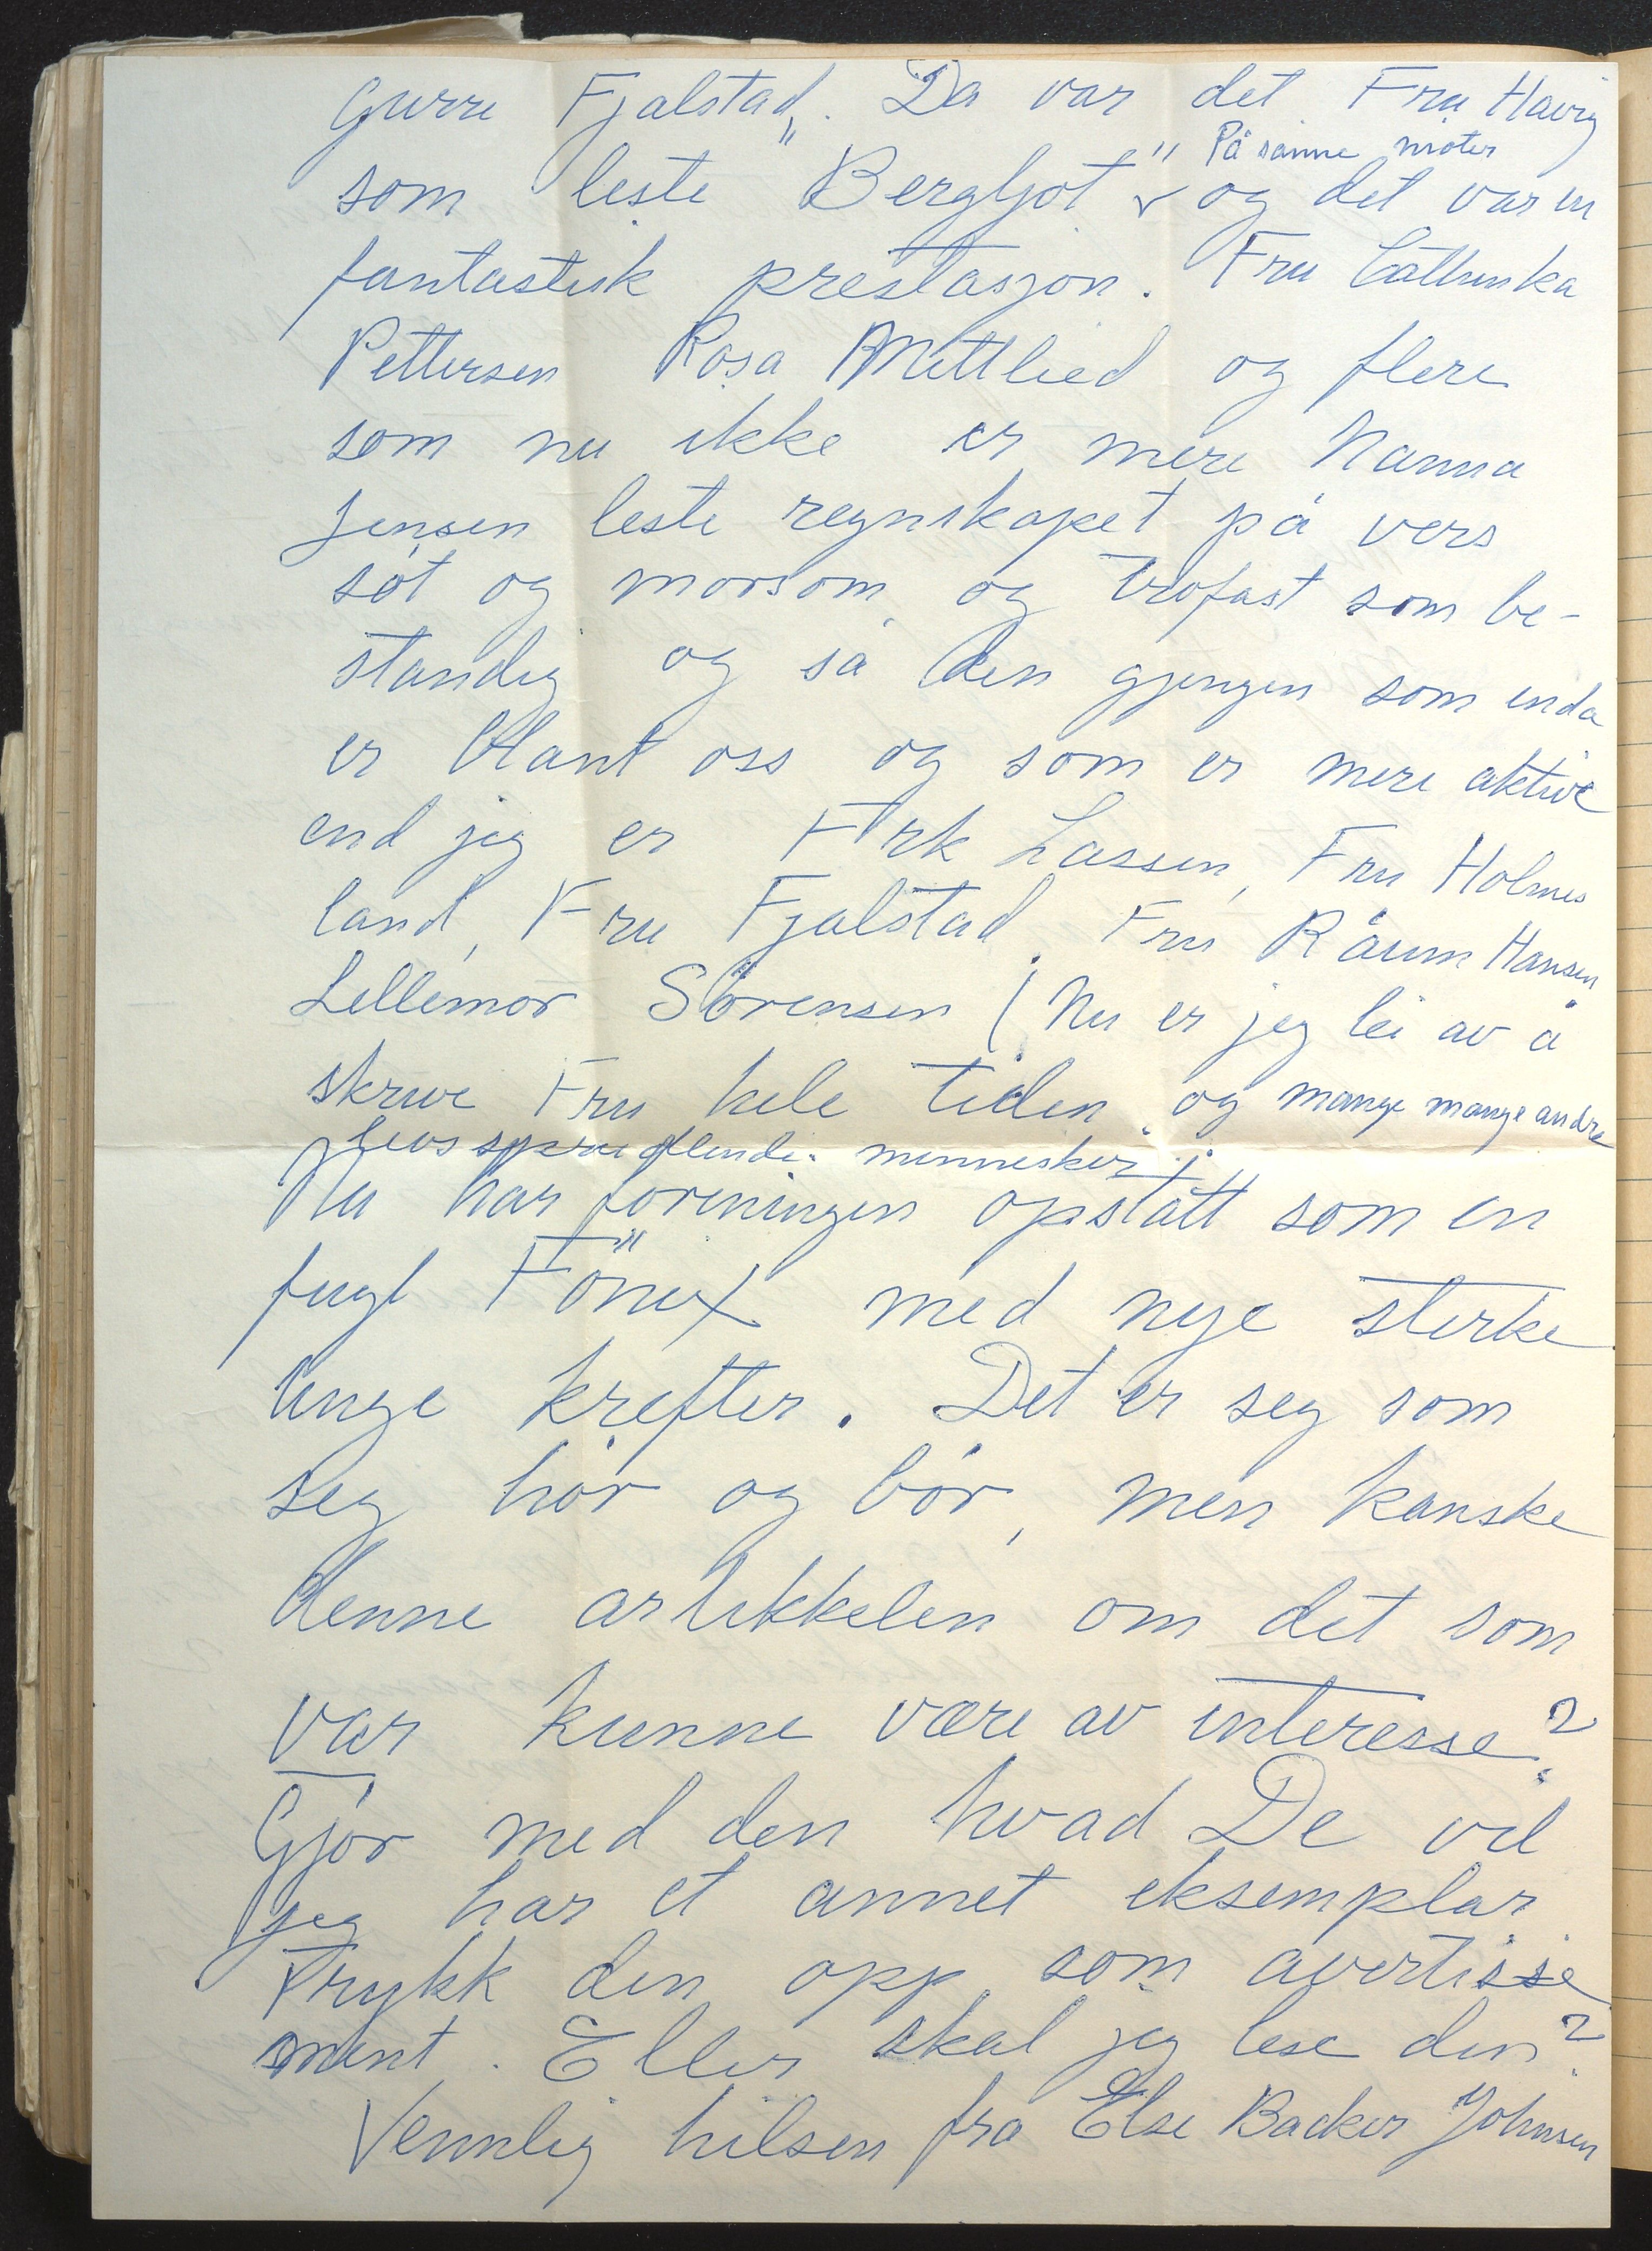 Gurre Fjalstad. Da var det Fru Havig
som leste „Bergljot" På samme møter
og det var en
fantastisk prestasjon. Fru Cathinka
Pettersen Rosa Mittlied og flere
som nu ikke er mere Nanna
Jensen leste regnskapet på vers
søt og morsom og trofast som be-
standig og så den gjengen som enda
er blant oss og som er mere aktive
end jeg er Frk Lassen, Fru Holmes
land, Fru Fjalstad. Fru Råum Hansen
Lillemor Sörensen (Nu er jeg lei av å
skrive Fru hele tiden og mange mange andre
livssprudlende mennesker)
Nu har foreningen opstått som en
fugl Fönix med nye sterke
unge krefter. Det er seg som
seg hør og bør, men kanske
denne artikkelen om det som
var kunne være av interesse?
Gjør med den hvad De vil
jeg har et annet eksemplar
Trykk den opp som avertisse
ment. Eller skal jeg lese den?
Vennlig hilsen fra Else Backer Johnsen